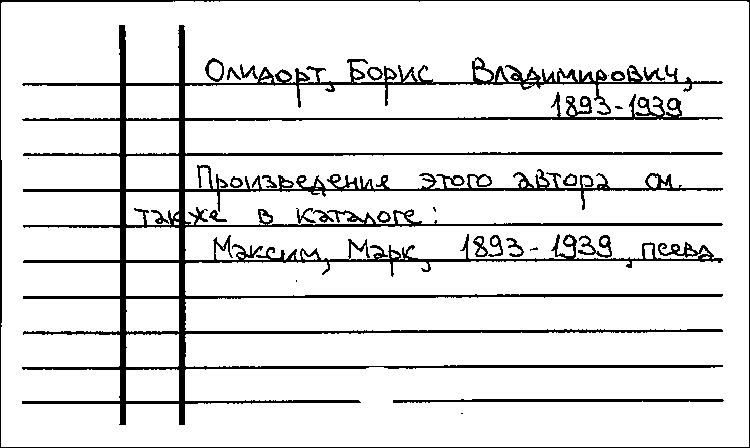 Олидорт, Борис Владимирович,
1893-1939
Произведения этого автора см.
также в каталоге:
Максим, Марк, 1893-1939, псевд.